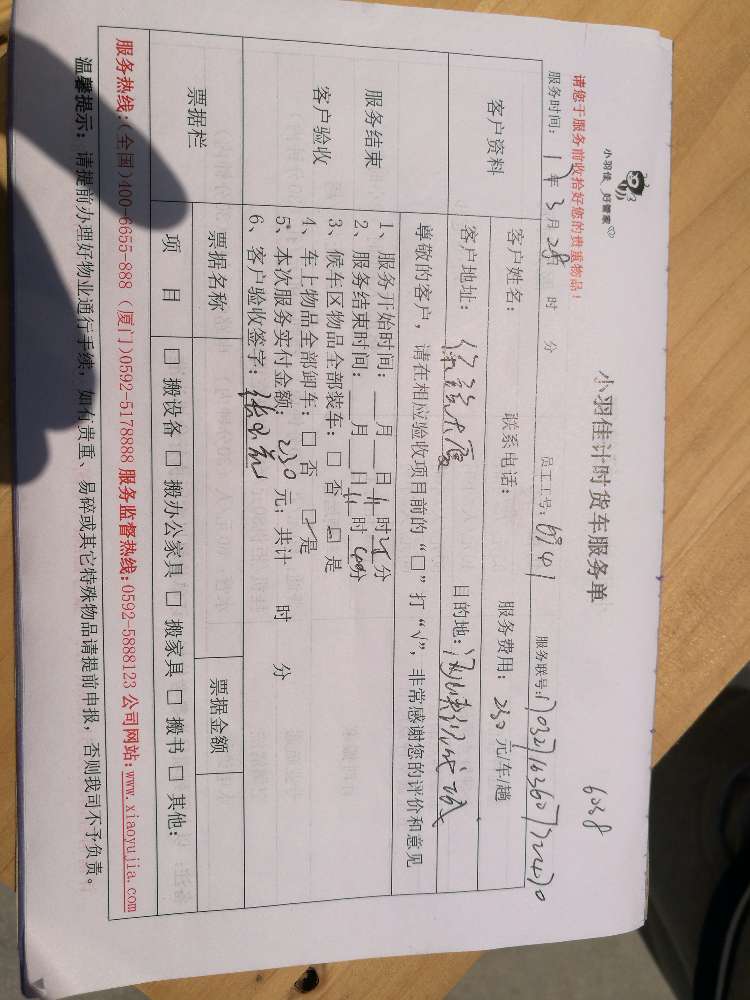 小羽佳 好管家
小羽佳计时货车服务单
6038
请您于服务前收拾好您的贵重物品！
服务时间： 年 3 月 28 日 时 分 员工工号：6941 服务联号：
客户资料
客户姓名： 联系电话： 服务费用：230 元/车/趟
客户地址： 大厦 目的地：
服务结束
客户验收
尊敬的客户，请在相应验收项目前的“□”打“√”，非常感谢您的评价和意见
1、服务开始时间：__月__日 时 分
2、服务结束时间：__月__日 时 分
3、候车区物品全部装车：□ 否 □ 是
4、车上物品全部卸车：□ 否 □ 是
5、本次服务实付金额：230 元；共计 时 分
6、客户验收签字：
票据栏
票据名称 票据金额
项 目 □ 搬设备 □ 搬办公家具 □ 搬家具 □ 搬书 □ 其他：
服务热线：(全国)400-6655-888 (厦门)0592-5178888 服务监督热线：0592-5888123 公司网站：www.xiaoyujia.com
温馨提示：请提前办理好物业通行手续，如有贵重、易碎或其它特殊物品请提前申报，否则我司不予负责。